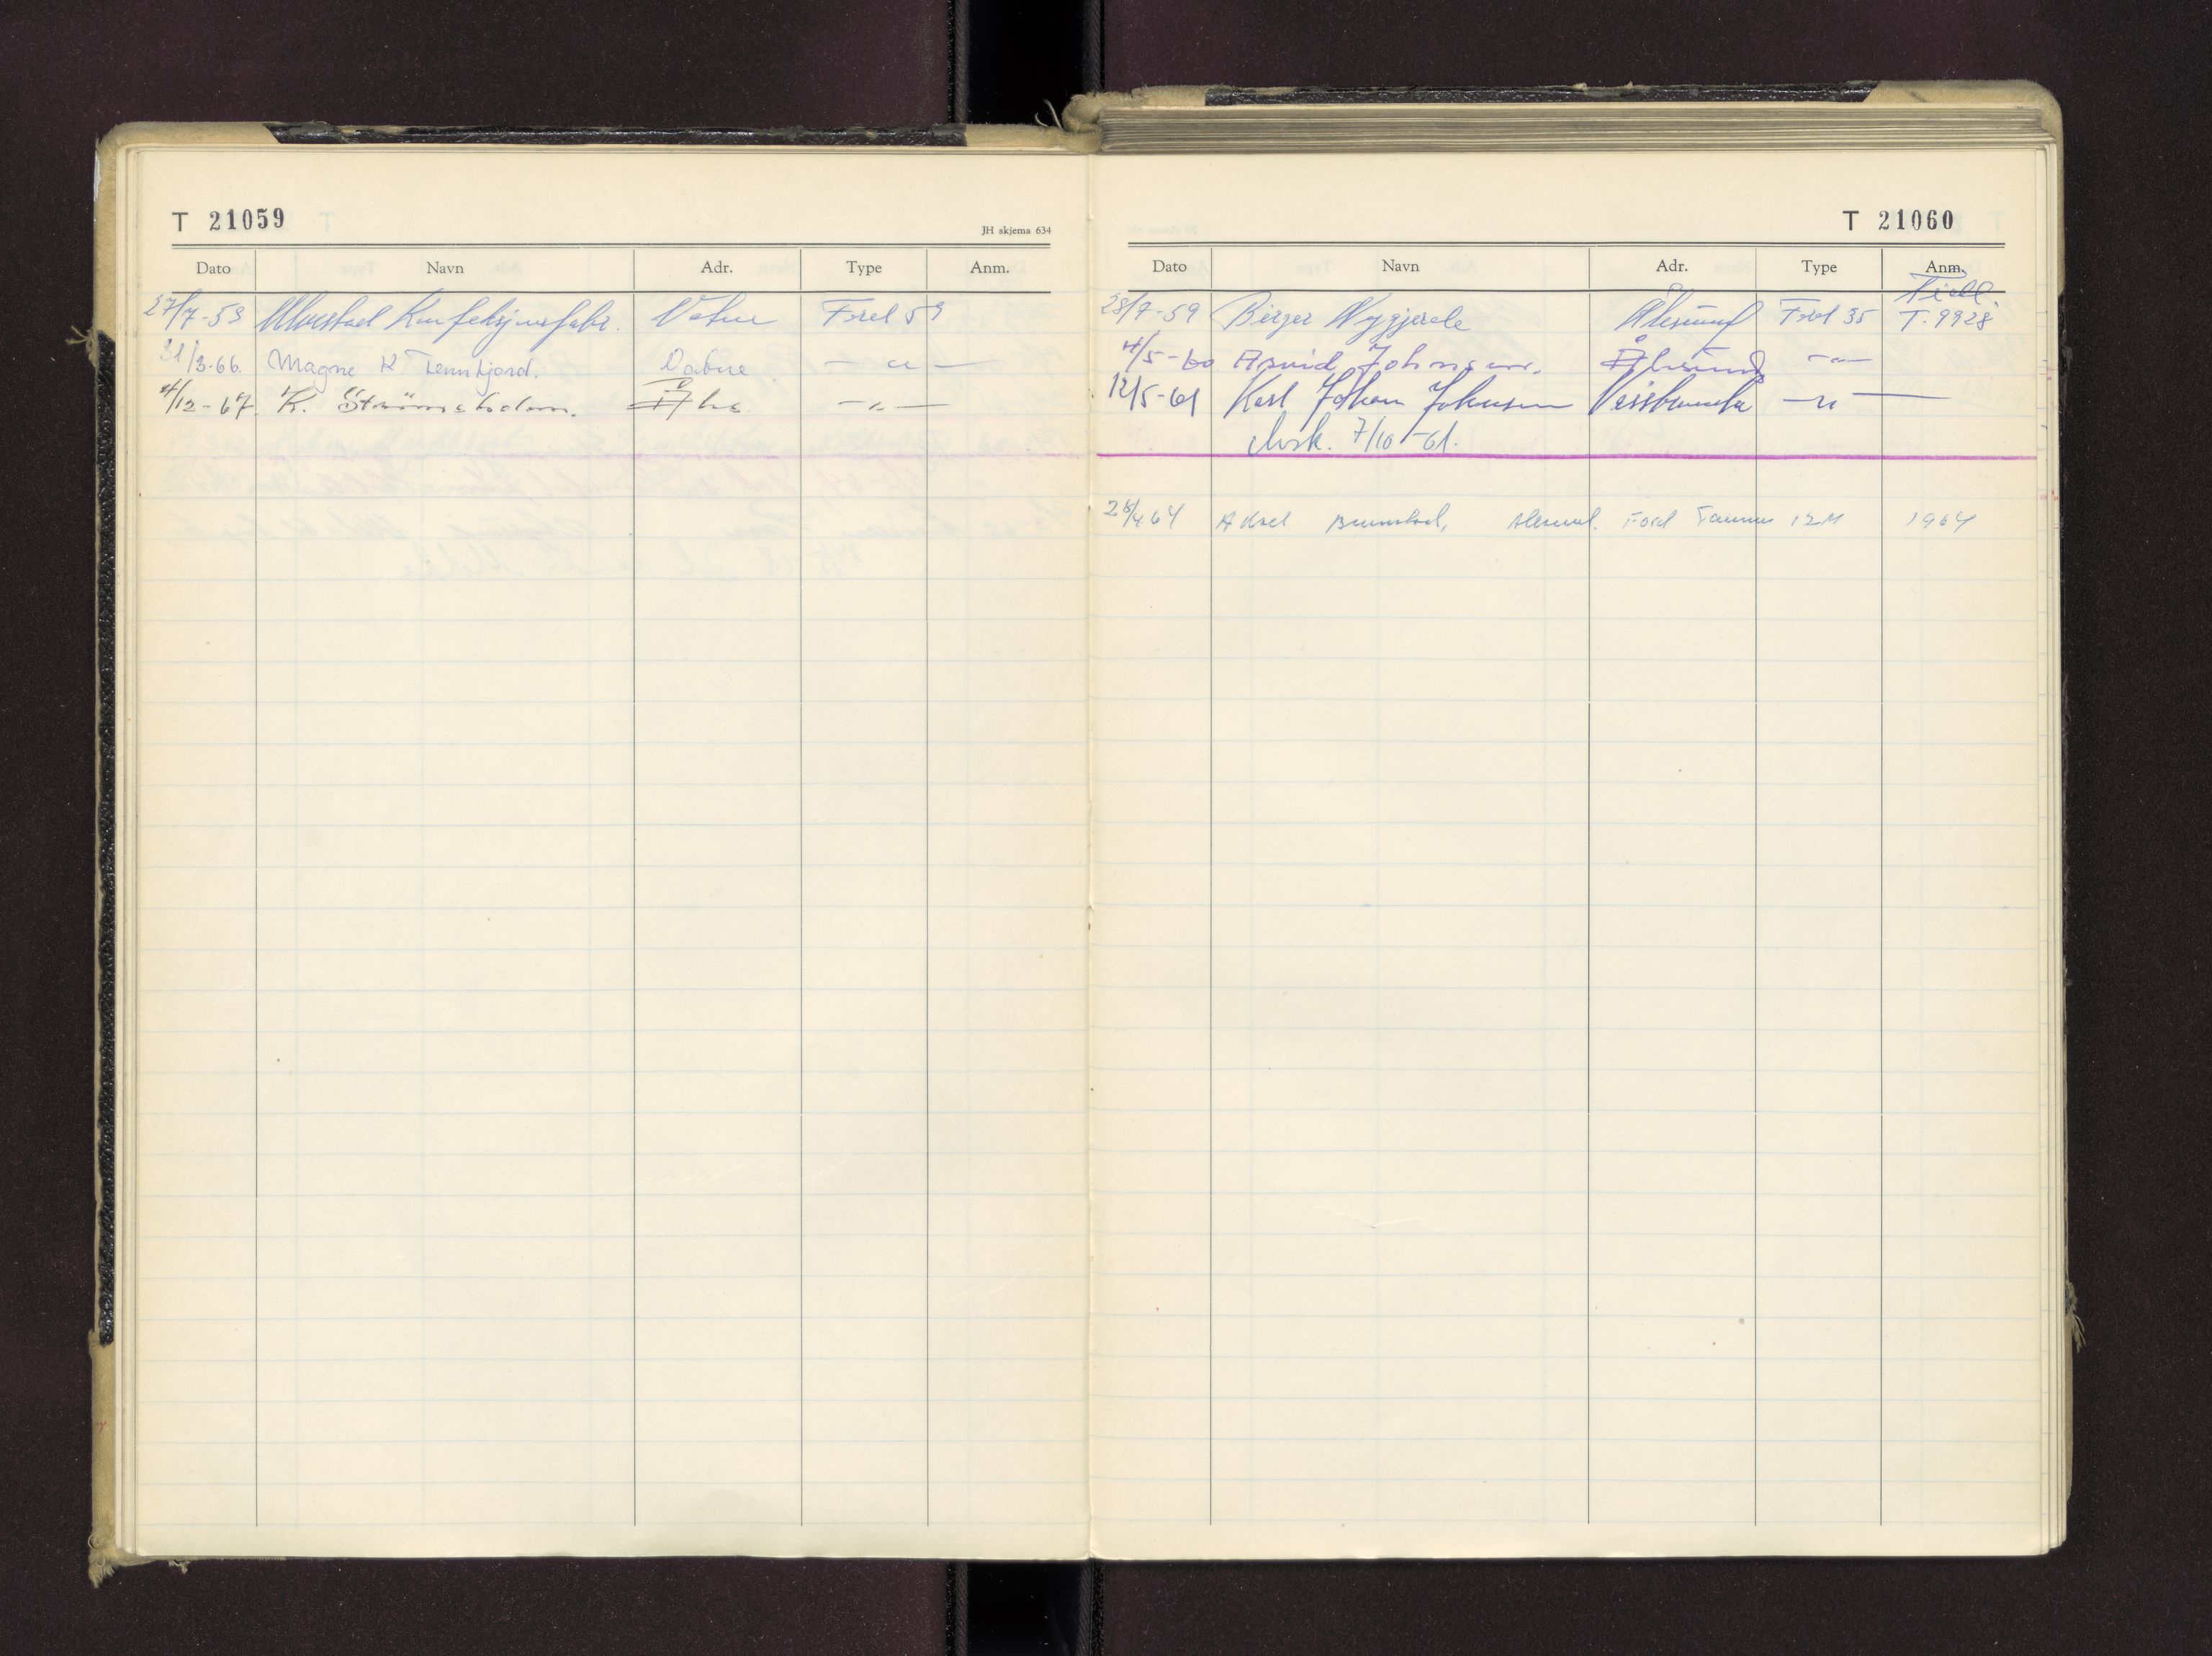 T 21059
JH skjema 634
Dato Navn Adr. Type Anm.
27/7-59 Ulvestad Konfeksjonsfabr. Vatne Ford 59
31/3-66. Magne K Tennfjord. Vatne -"-
4/12-67. K. Strømsholm. -"-
T 21060
Dato Navn Adr. Type Anm.
Tidl.
28/7-59 Birger Nygjerde Ålesund Ford 35 T. 9928
4/5-60 Arvid Johansen. Ålesund -"-
12/5-61 Karl Johan Johnsen -"-
Avsk. 7/10-61.
Aksel Brunstad, Ålesund. Ford Taunus 12M 1964